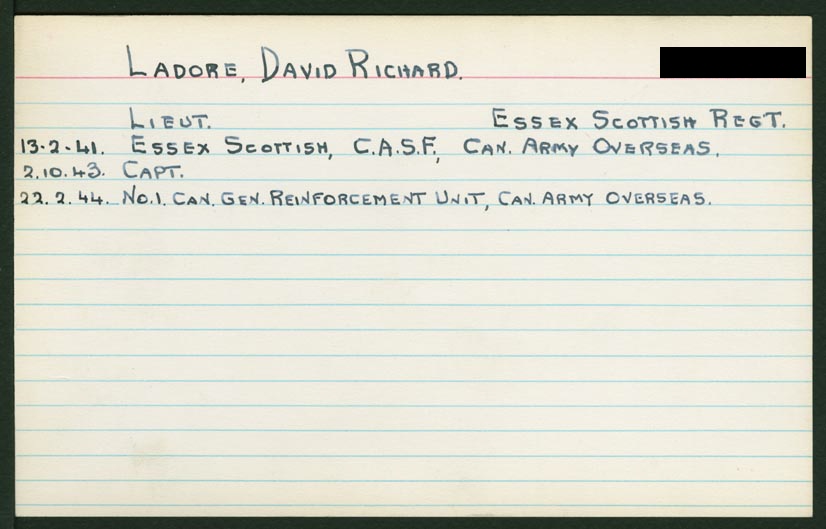 LADORE, DAVID RICHARD.
LIEUT. ESSEX SCOTTISH REGT.
13.2.41. ESSEX SCOTTISH, C.A.S.F., CAN. ARMY OVERSEAS.
2.10.43. CAPT.
22.2.44. NO.1. CAN. GEN. REINFORCEMENT UNIT, CAN. ARMY OVERSEAS.